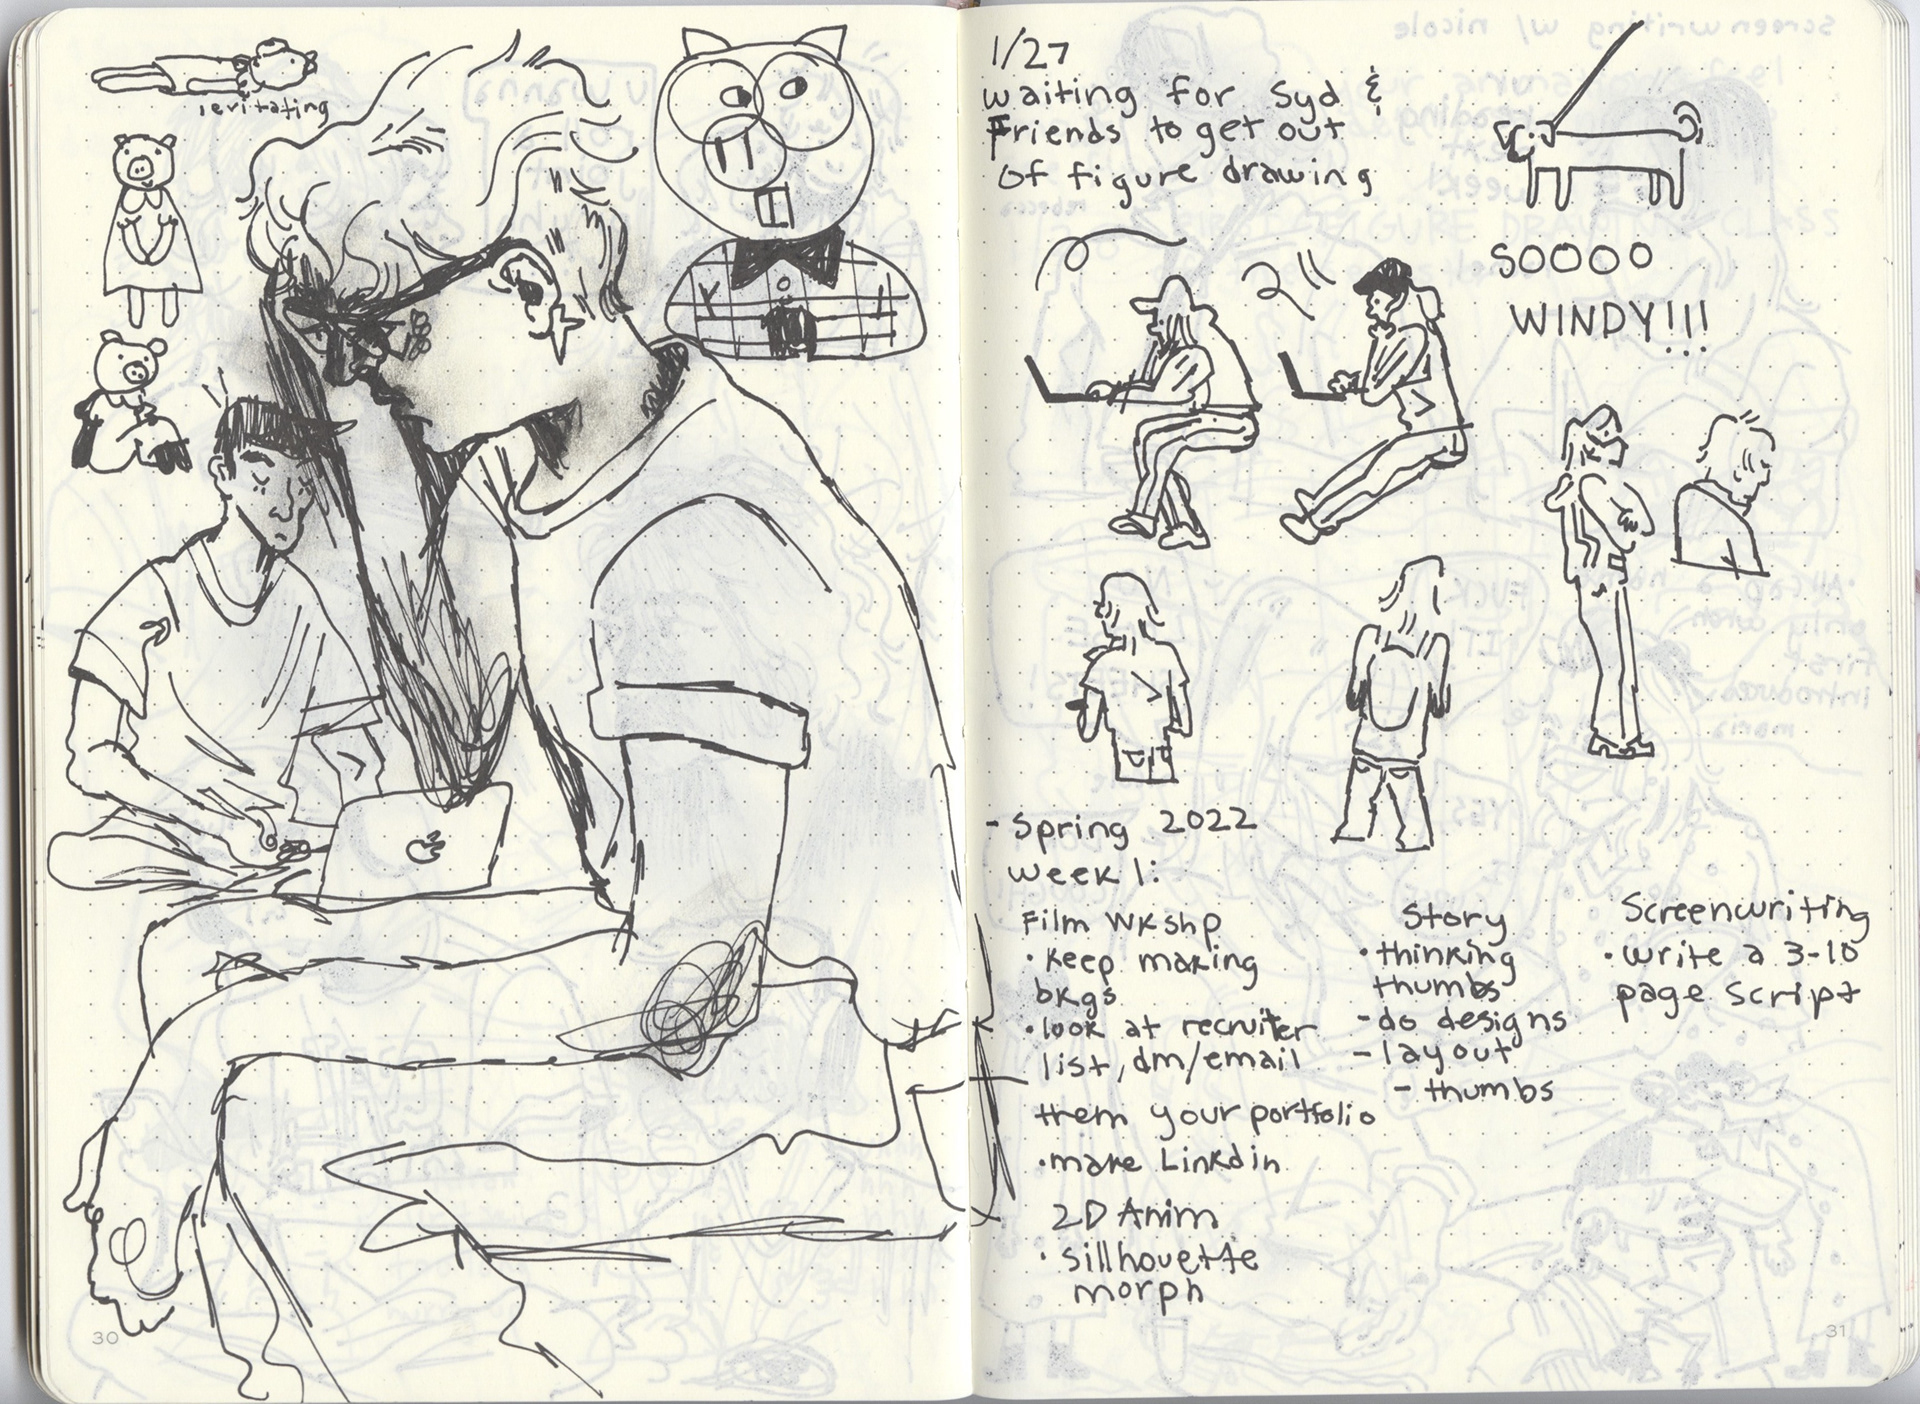 levitating
30
1/27
waiting for Syd &
Friends to get out
of figure drawing
SOOOO
WINDY!!!
- Spring 2022
week 1:
Film Wkshp
· keep making
bkgs
· look at recruiter
list, dm/email
them your portfolio
· make Linkdin
2D Anim
· sillhouette
morph
Story
· thinking
thumbs
- do designs
- layout
- thumbs
Screenwriting
· write a 3-10
page script
31